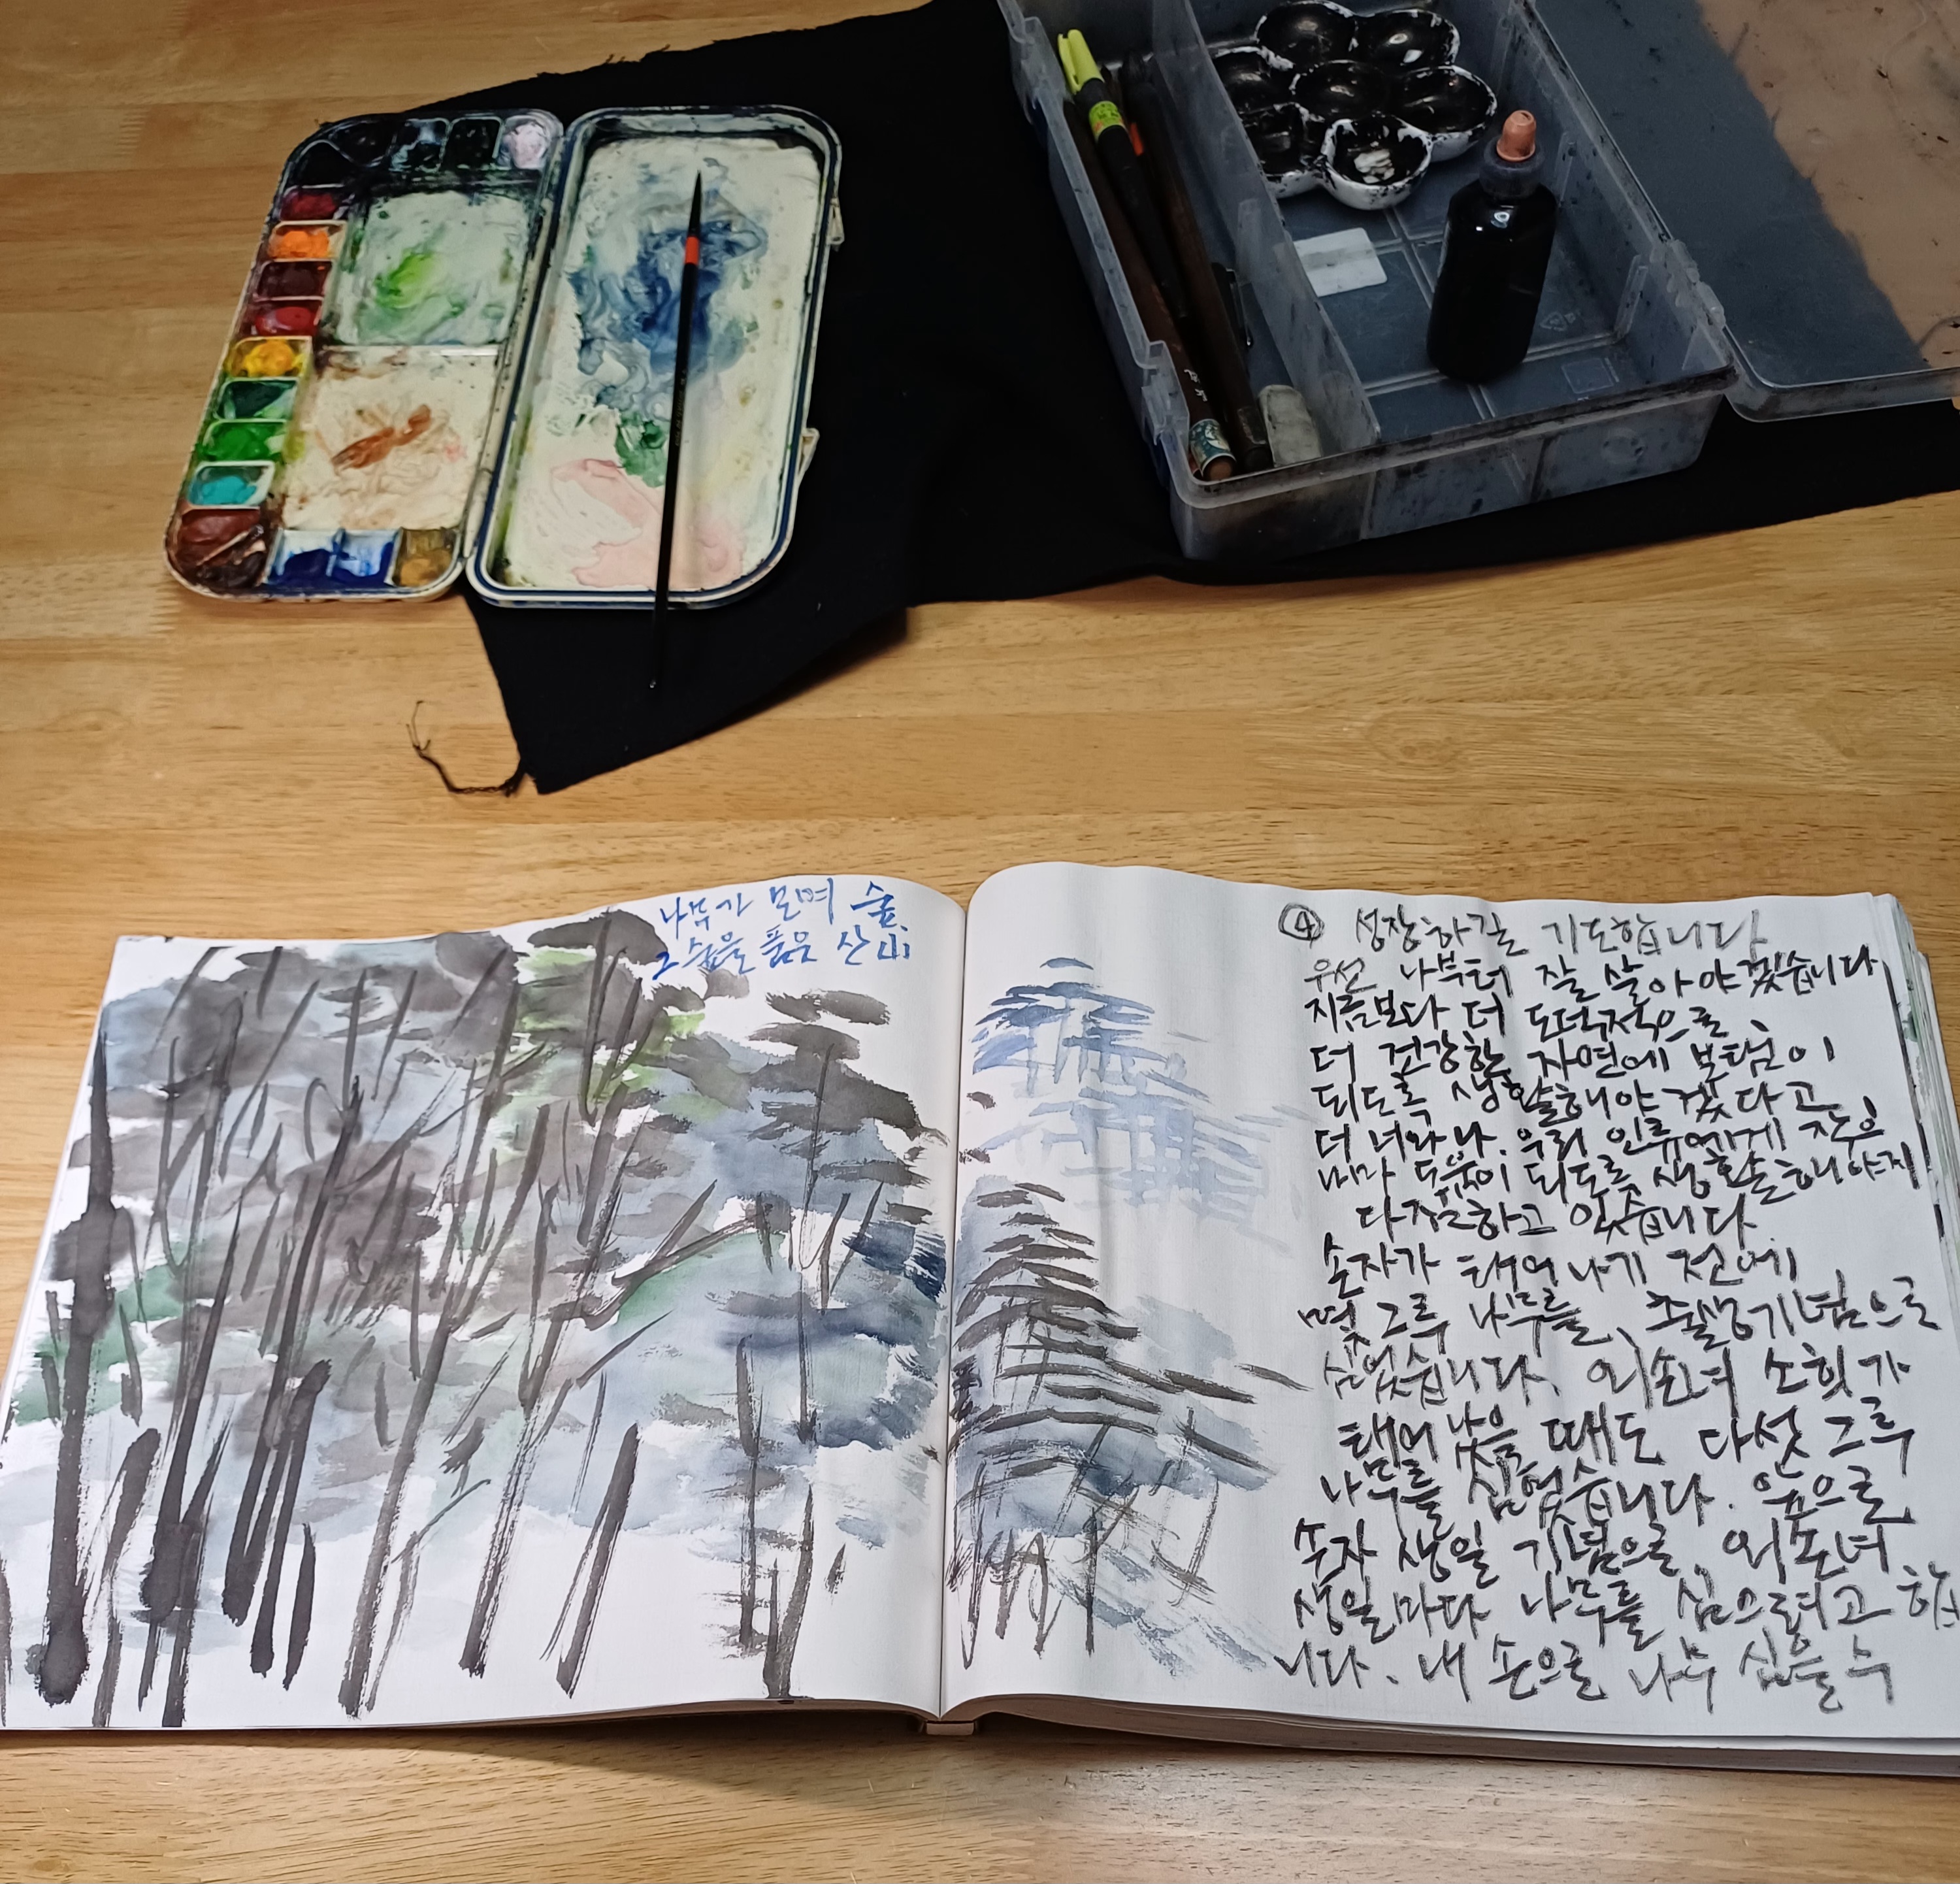 나무가 모여 숲,
그 숲을 품은 산 山
④ 성장하길 기도합니다
우선 나부터 잘 살아야겠습니다
지금보다 더 도덕적으로,
더 건강한 자연에 보탬이
되도록 생활해야겠다고
더 너와 나. 우리 인류에게 작으
나마 도움이 되도록 생활을 해야지
다짐하고 있습니다.
손자가 태어나기 전에
몇 그루 나무를, 출생기념으로
심었습니다. 외손녀 소희가
태어났을 때도 다섯 그루
나무를 심었습니다. 앞으로,
손자 생일 기념으로, 외손녀
생일마다 나무를 심으려고 합
니다. 내 손으로 나무 심을 수